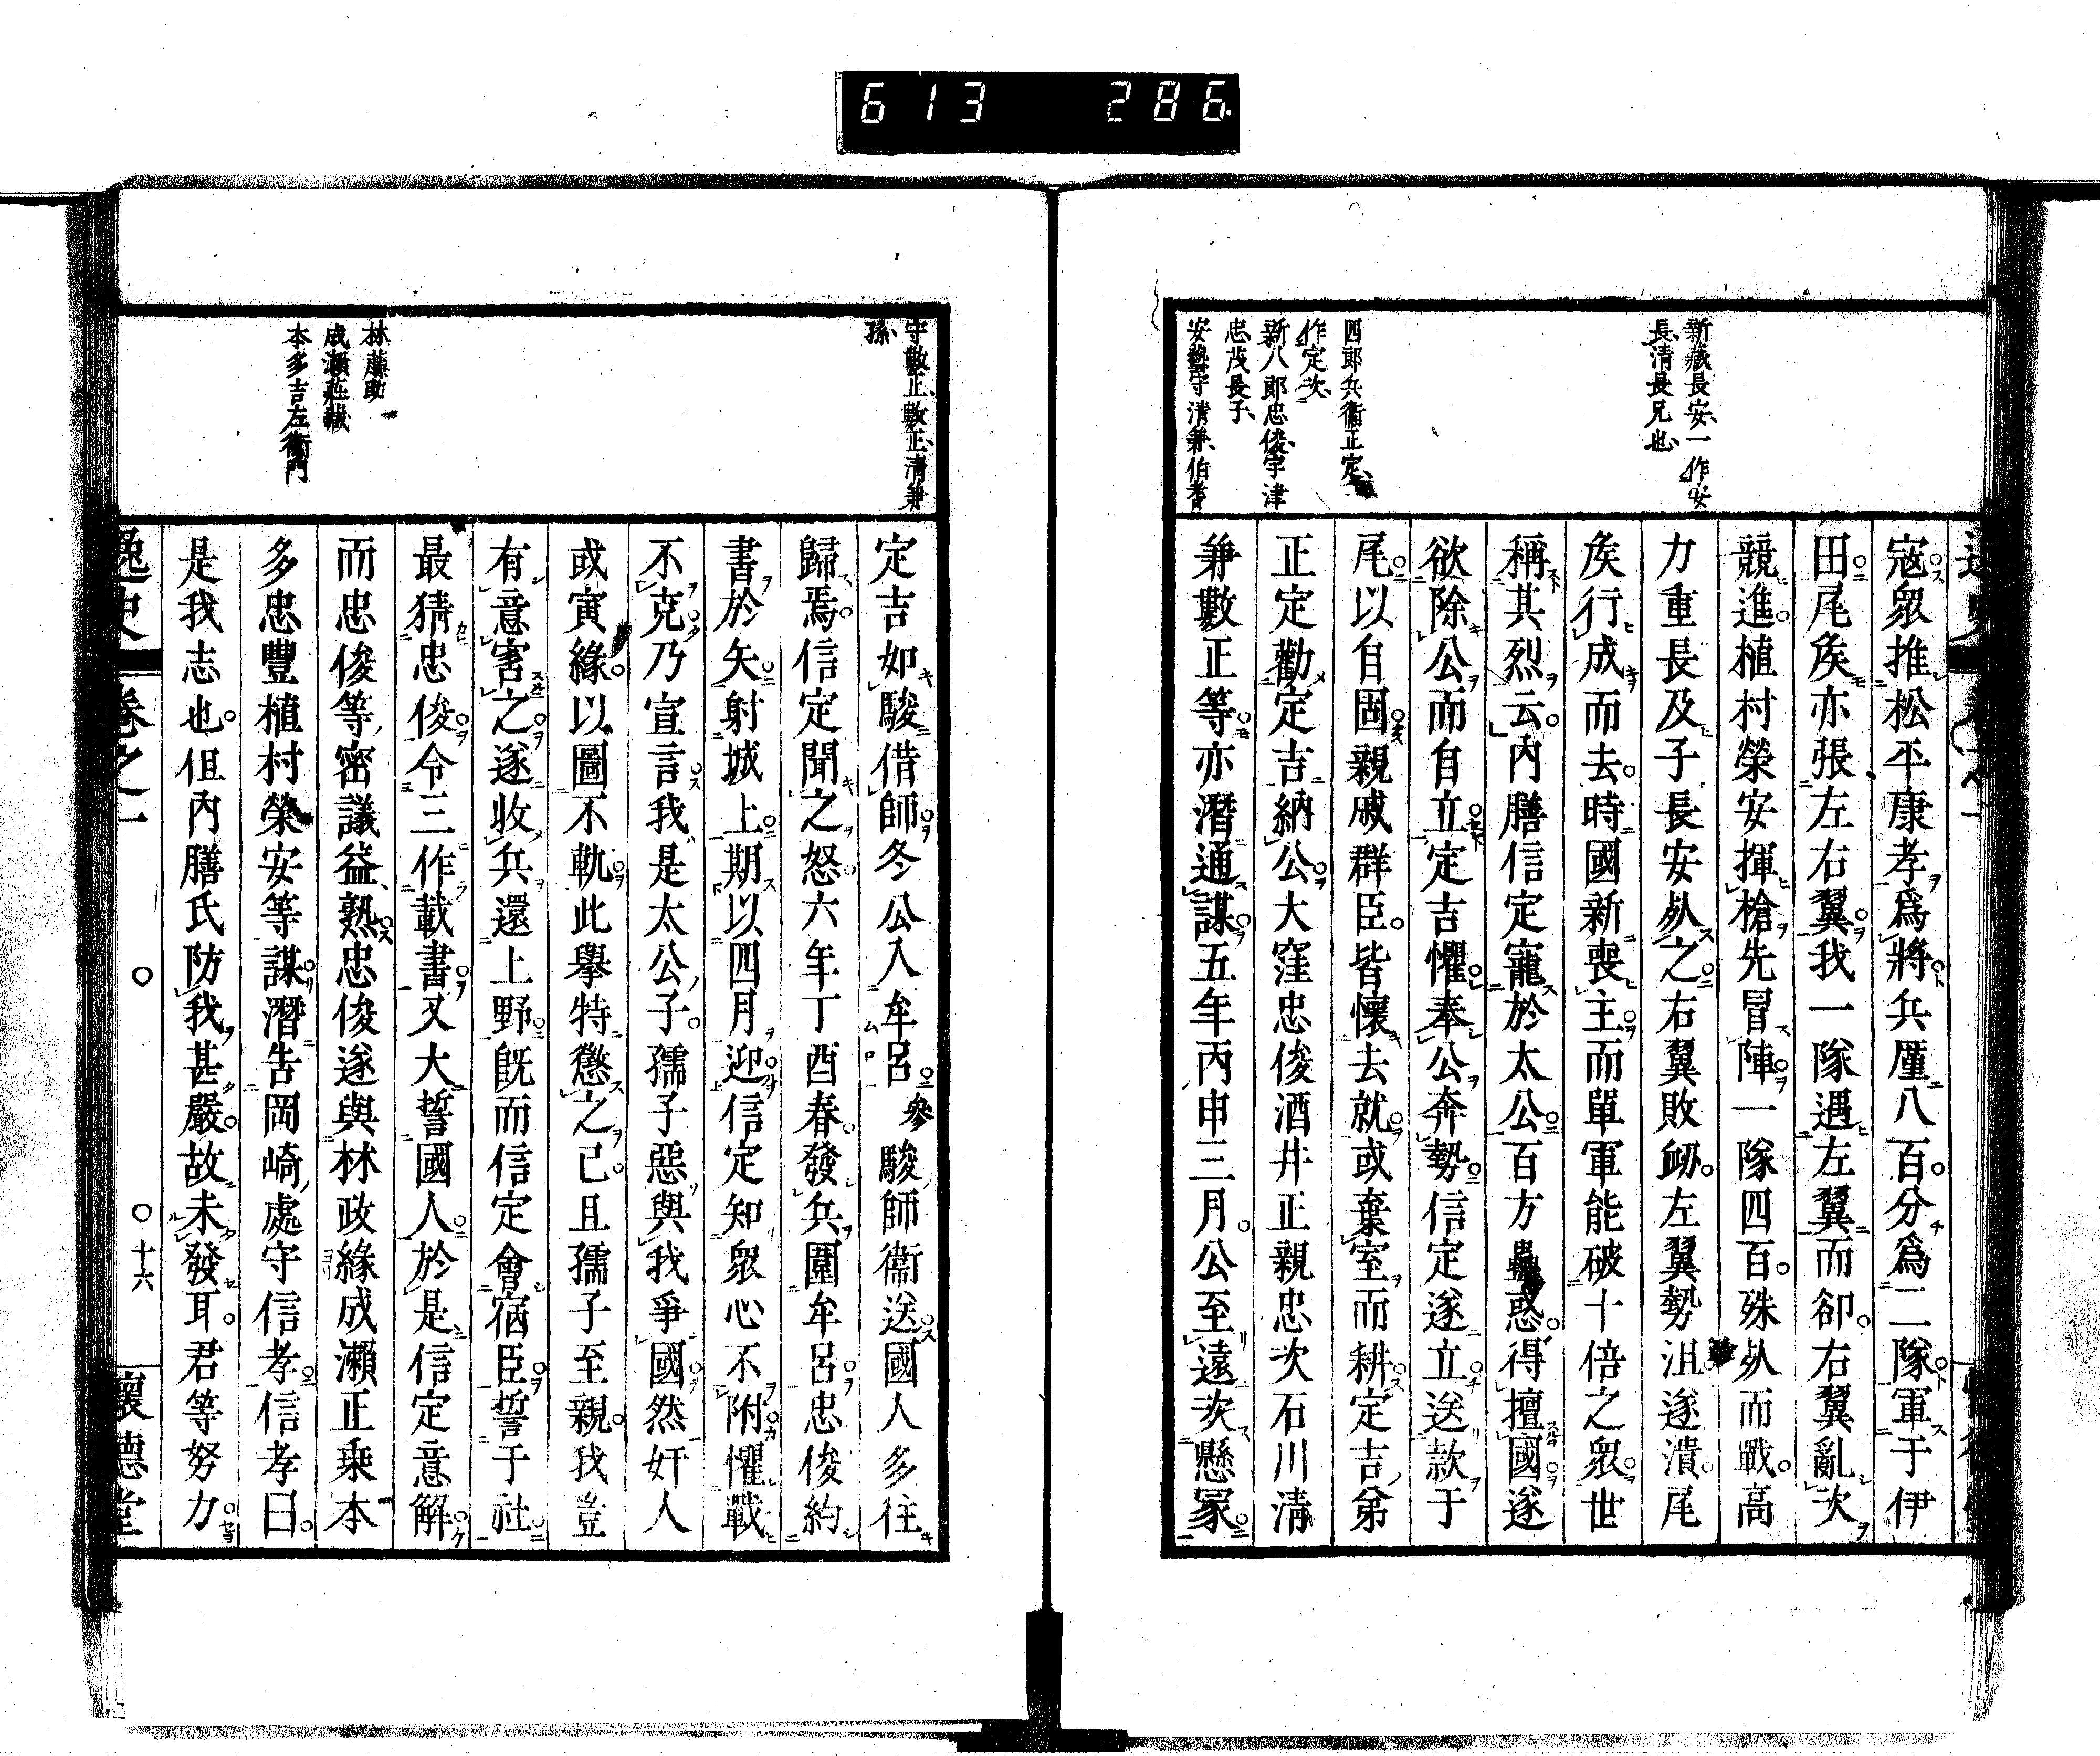 613 286
新藏長安、一作安
長、清長兄也、
四郎兵衞正定、一
作定次、
新八郎忠俊、宇津
忠茂長子、
安藝守清兼、伯耆
寇衆推松平康孝爲將兵厪八百分爲二隊軍于伊
田尾矦亦張左右翼我一隊遇左翼而卻右翼亂次
競進植村榮安揮槍先冒陣一隊四百殊死而戰高
力重長及子長安死之右翼敗衂左翼勢沮遂潰尾
矦行成而去時國新喪主而單軍能破十倍之衆世
稱其烈云內膳信定寵於太公百方蠱惑得擅國遂
欲除公而自立定吉懼奉公奔勢信定遂立送款于
尾以自固親戚群臣皆懷去就或棄室而耕定吉弟
正定勸定吉納公大窪忠俊酒井正親忠次石川清
兼數正等亦潛通謀五年丙申三月公至遠次懸冢
守數正、數正、清兼
孫、
林藤助
成瀨莊藏
本多吉左衞門
定吉如駿借師冬公入牟呂參駿師衞送國人多往
歸焉信定聞之怒六年丁酉春發兵圍牟呂忠俊約
書於矢射城上期以四月迎信定知衆心不附懼戰
不克乃宣言我是太公子孺子惡與我爭國然奸人
或寅緣以圖不軌此擧特懲之已且孺子至親我豈
有意害之遂收兵還上野既而信定會宿臣誓于社
最猜忠俊令三作載書又大誓國人於是信定意解
而忠俊等密議益熟忠俊遂與林政緣成瀨正乘本
多忠豐植村榮安等謀潛告岡崎處守信孝信孝曰
是我志也但內膳氏防我甚嚴故未發耳君等努力
逸史 卷之一 十六 懷德堂